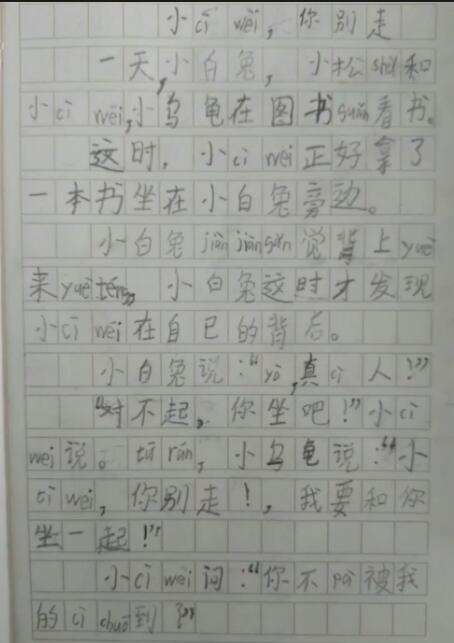 小cì wèi，你别走
一天,小白兔，小松shǔ和
小cì wèi,小乌龟在图书guǎn看书。
这时，小cì wèi正好拿了
一本书坐在小白兔旁边。
小白兔jiàn jiàn gǎn觉背上yuè
来yuè téng，小白兔这时才发现
小cì wèi在自己的背后。
小白兔说：“yō,真cì人！”
“对不起，你坐吧！”小cì
wei说。tū rán，小乌龟说：“小
cì wei，你别走！，我要和你
坐一起！”
小cì wèi问：“你不pà被我
的cì chuō到？”